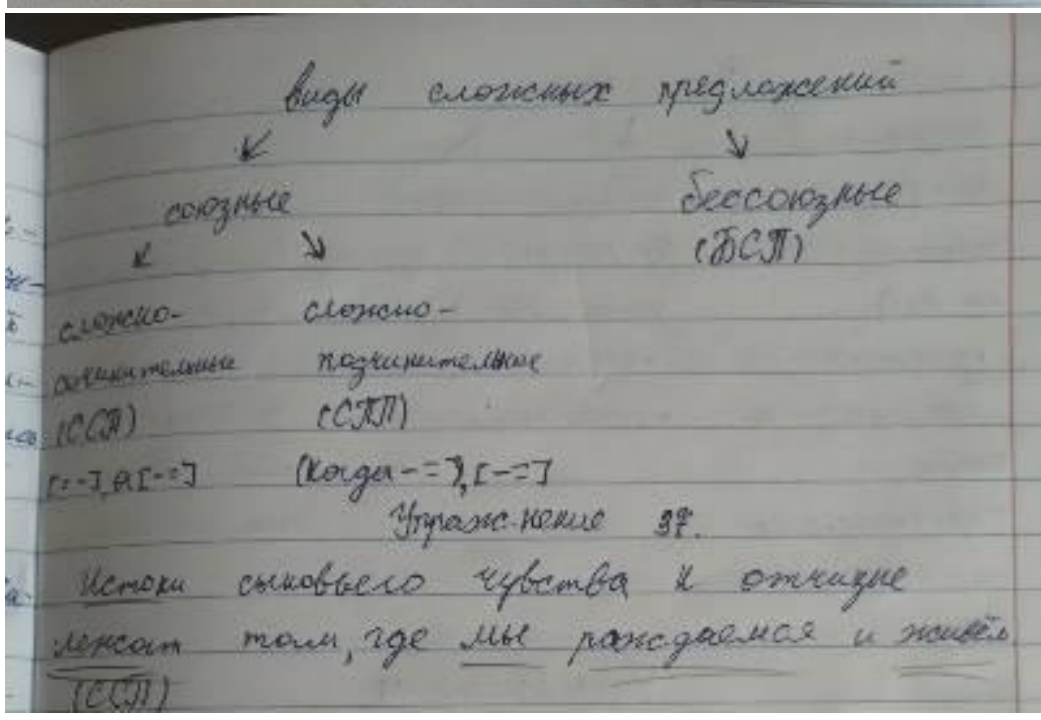 виды сложных предложений
союзные бессоюзные
(БСП)
сложно- сложно-
сочинительные подчинительные
(ССП) (СПП)
[= -], а [- =] (когда - =), [- =]
Упраж-нение 37.
Истоки сыновьего чувства к отчизне
лежат там, где мы рождаемся и живём
(ССП)